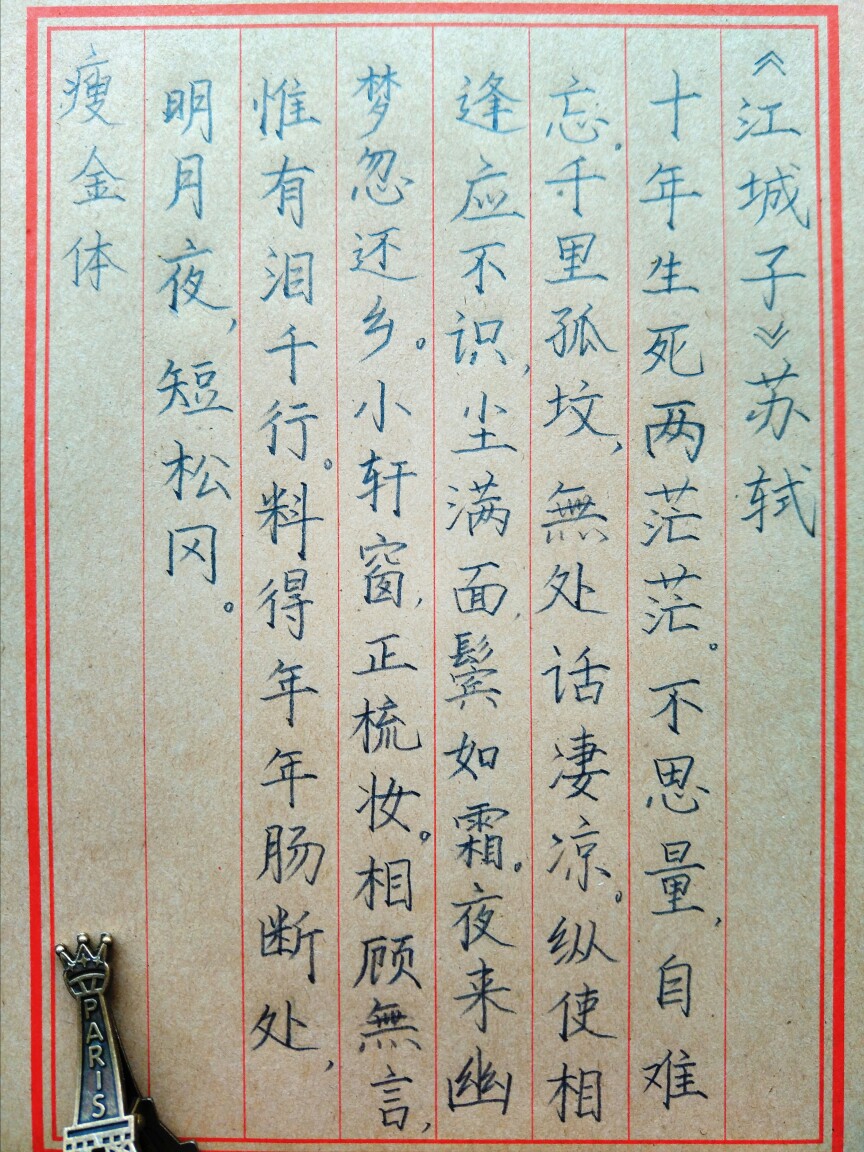 《江城子》苏轼
十年生死两茫茫。不思量,自难
忘。千里孤坟,無处话凄凉。纵使相
逢应不识,尘满面,鬓如霜。夜来幽
梦忽还乡。小轩窗,正梳妆。相顾無言,
惟有泪千行。料得年年肠断处,
明月夜,短松冈。
瘦金体
PARIS